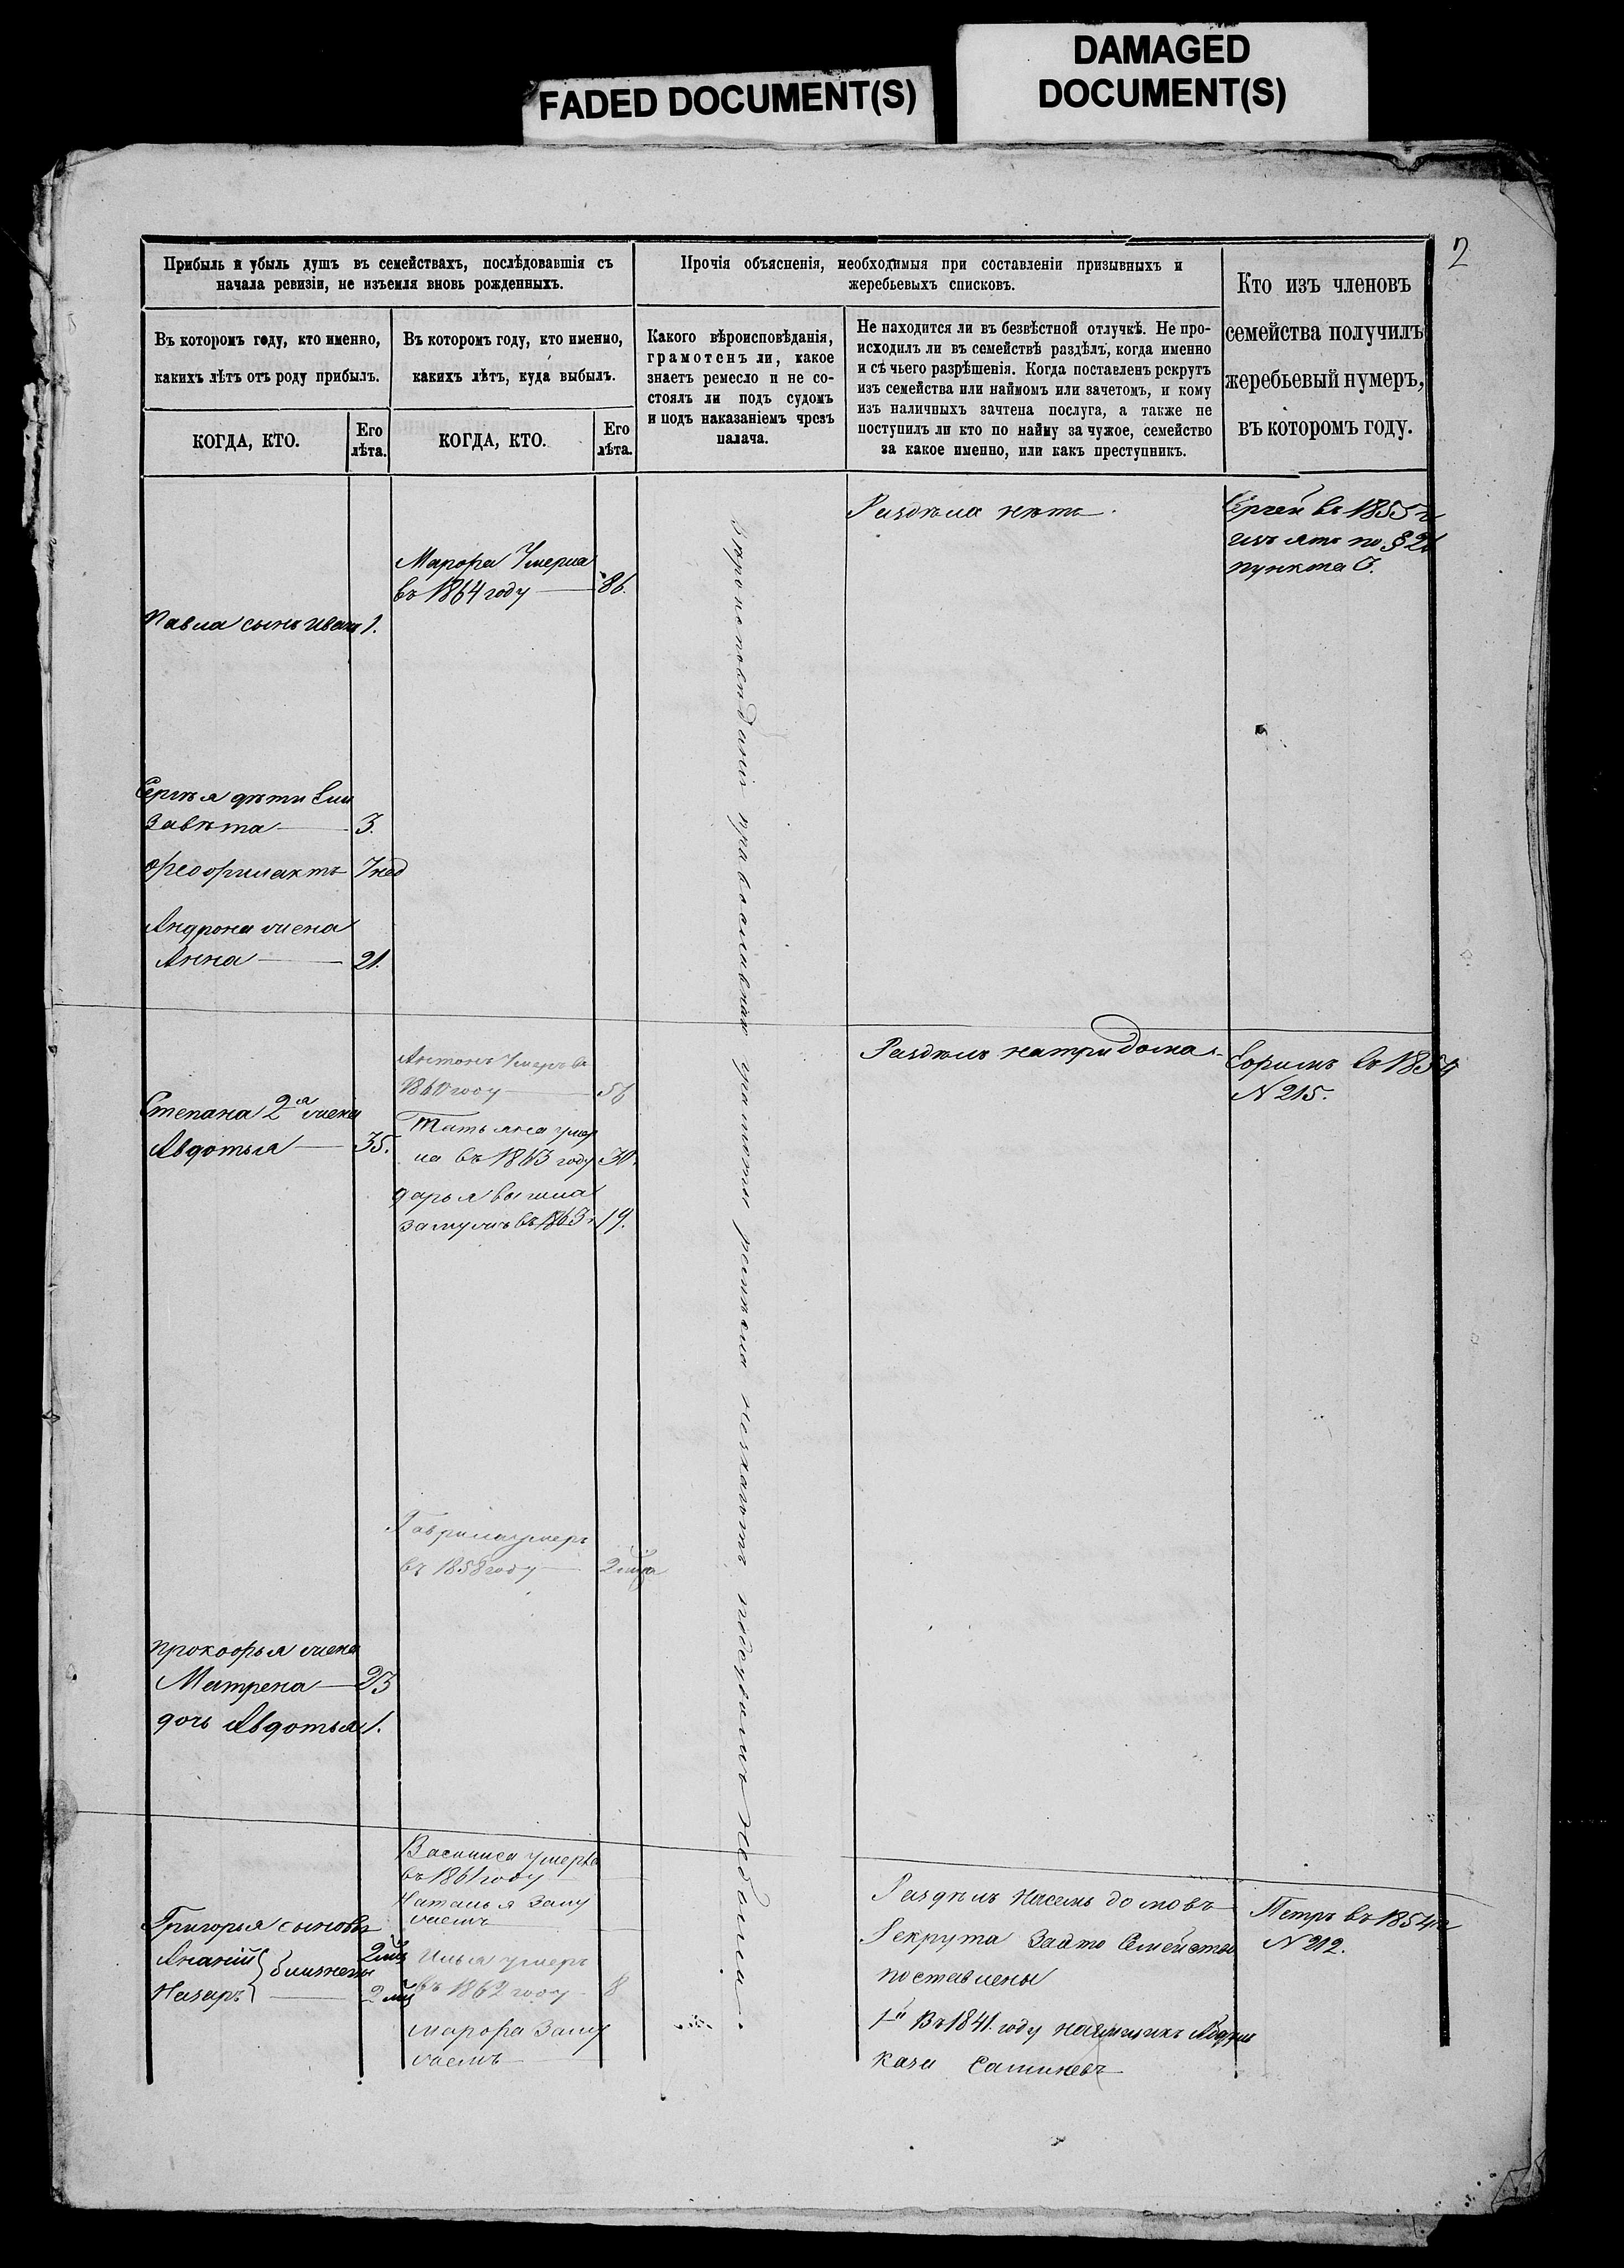 FADED DOCUMENT(S)
DAMAGED
DOCUMENT(S)
2
Прибыль и убыль душъ въ семействахъ, послѣдовавшія съ
начала ревизіи, не изъемля вновь рожденныхъ.
Прочія объясненія, необходимыя при составленіи призывныхъ и
жеребьевыхъ списковъ.
Кто изъ членовъ
семейства получилъ
жеребьевый нумеръ,
въ которомъ году.
Въ которомъ году, кто именно,
какихъ лѣтъ отъ роду прибылъ.
Въ которомъ году, кто именно,
какихъ лѣтъ, куда выбылъ.
Какого вѣроисповѣданія,
грамотенъ ли, какое
знаетъ ремесло и не со-
стоялъ ли подъ судомъ
и подъ наказаніемъ чрезъ
палача.
Не находится ли въ безвѣстной отлучкѣ. Не про-
исходилъ ли въ семействѣ раздѣлъ, когда именно
и съ чьего разрѣшенія. Когда поставленъ рекрутъ
изъ семейства или наймомъ или зачетомъ, и кому
изъ наличныхъ зачтена послуга, а также не
поступилъ ли кто по найму за чужое, семейство
за какое именно, или какъ преступникъ.
КОГДА, КТО.
Его
лѣта.
КОГДА, КТО.
Его
лѣта.
Раздѣла нѣтъ.
Сергѣй въ 1855 г
по § 21
пункта
Марфа Умерла
въ 1864 году — 86.
Павла сынъ Иванъ 1.
Сергѣя дѣти Ели
завѣта — 3.
Феофилактъ 7 нед
Андрона жена
Анна — 21.
Вѣроисповѣданія православнаго грамоты ремесла незнаютъ подсудомъ небыли.
Раздѣлъ натри дома
Ефимъ въ 1854
N 215.
Антонъ Умеръ въ
1860 году — 56
Степана 2я жена
Авдотья — 35.
Татьяна умер
ла въ 1863 году 30.
Дарья вышла
замужъ въ 1863 г 19.
Гаврила умеръ
въ 1858 году —
Прокофья жена
Матрена — 23
дочь Авдотья 1.
Василиса умерла
въ 1861 году
Наталья Заму
жемъ
Григорья сыновья
Ананій } близнецы
Назаръ
Илья умеръ
въ 1862 году 8
Марфа Заму
жемъ
Раздѣлъ Насемь домовъ
Рекрута Заэто Семейство
поставлены
1й Въ 1841. году
Петръ въ 1854 г
N 212.